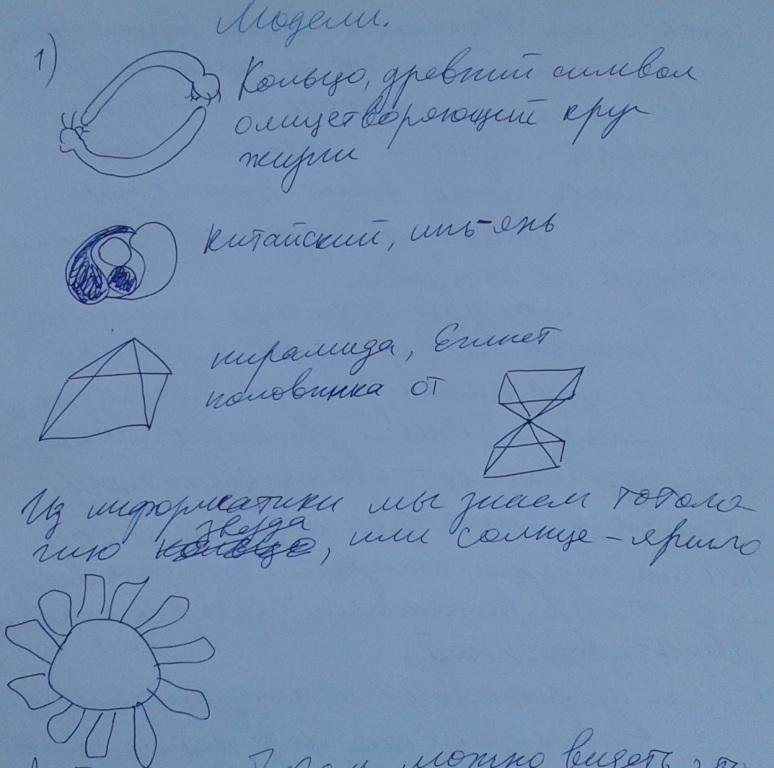 Модели.
1)
Кольцо, древний символ
олицетворяющий круг
жизни
Китайский, инь-янь
пирамида, Египет
половинка от
Из информатики мы знаем топола
звезда
гию кольцо, или солнце - ярило
можно видеть